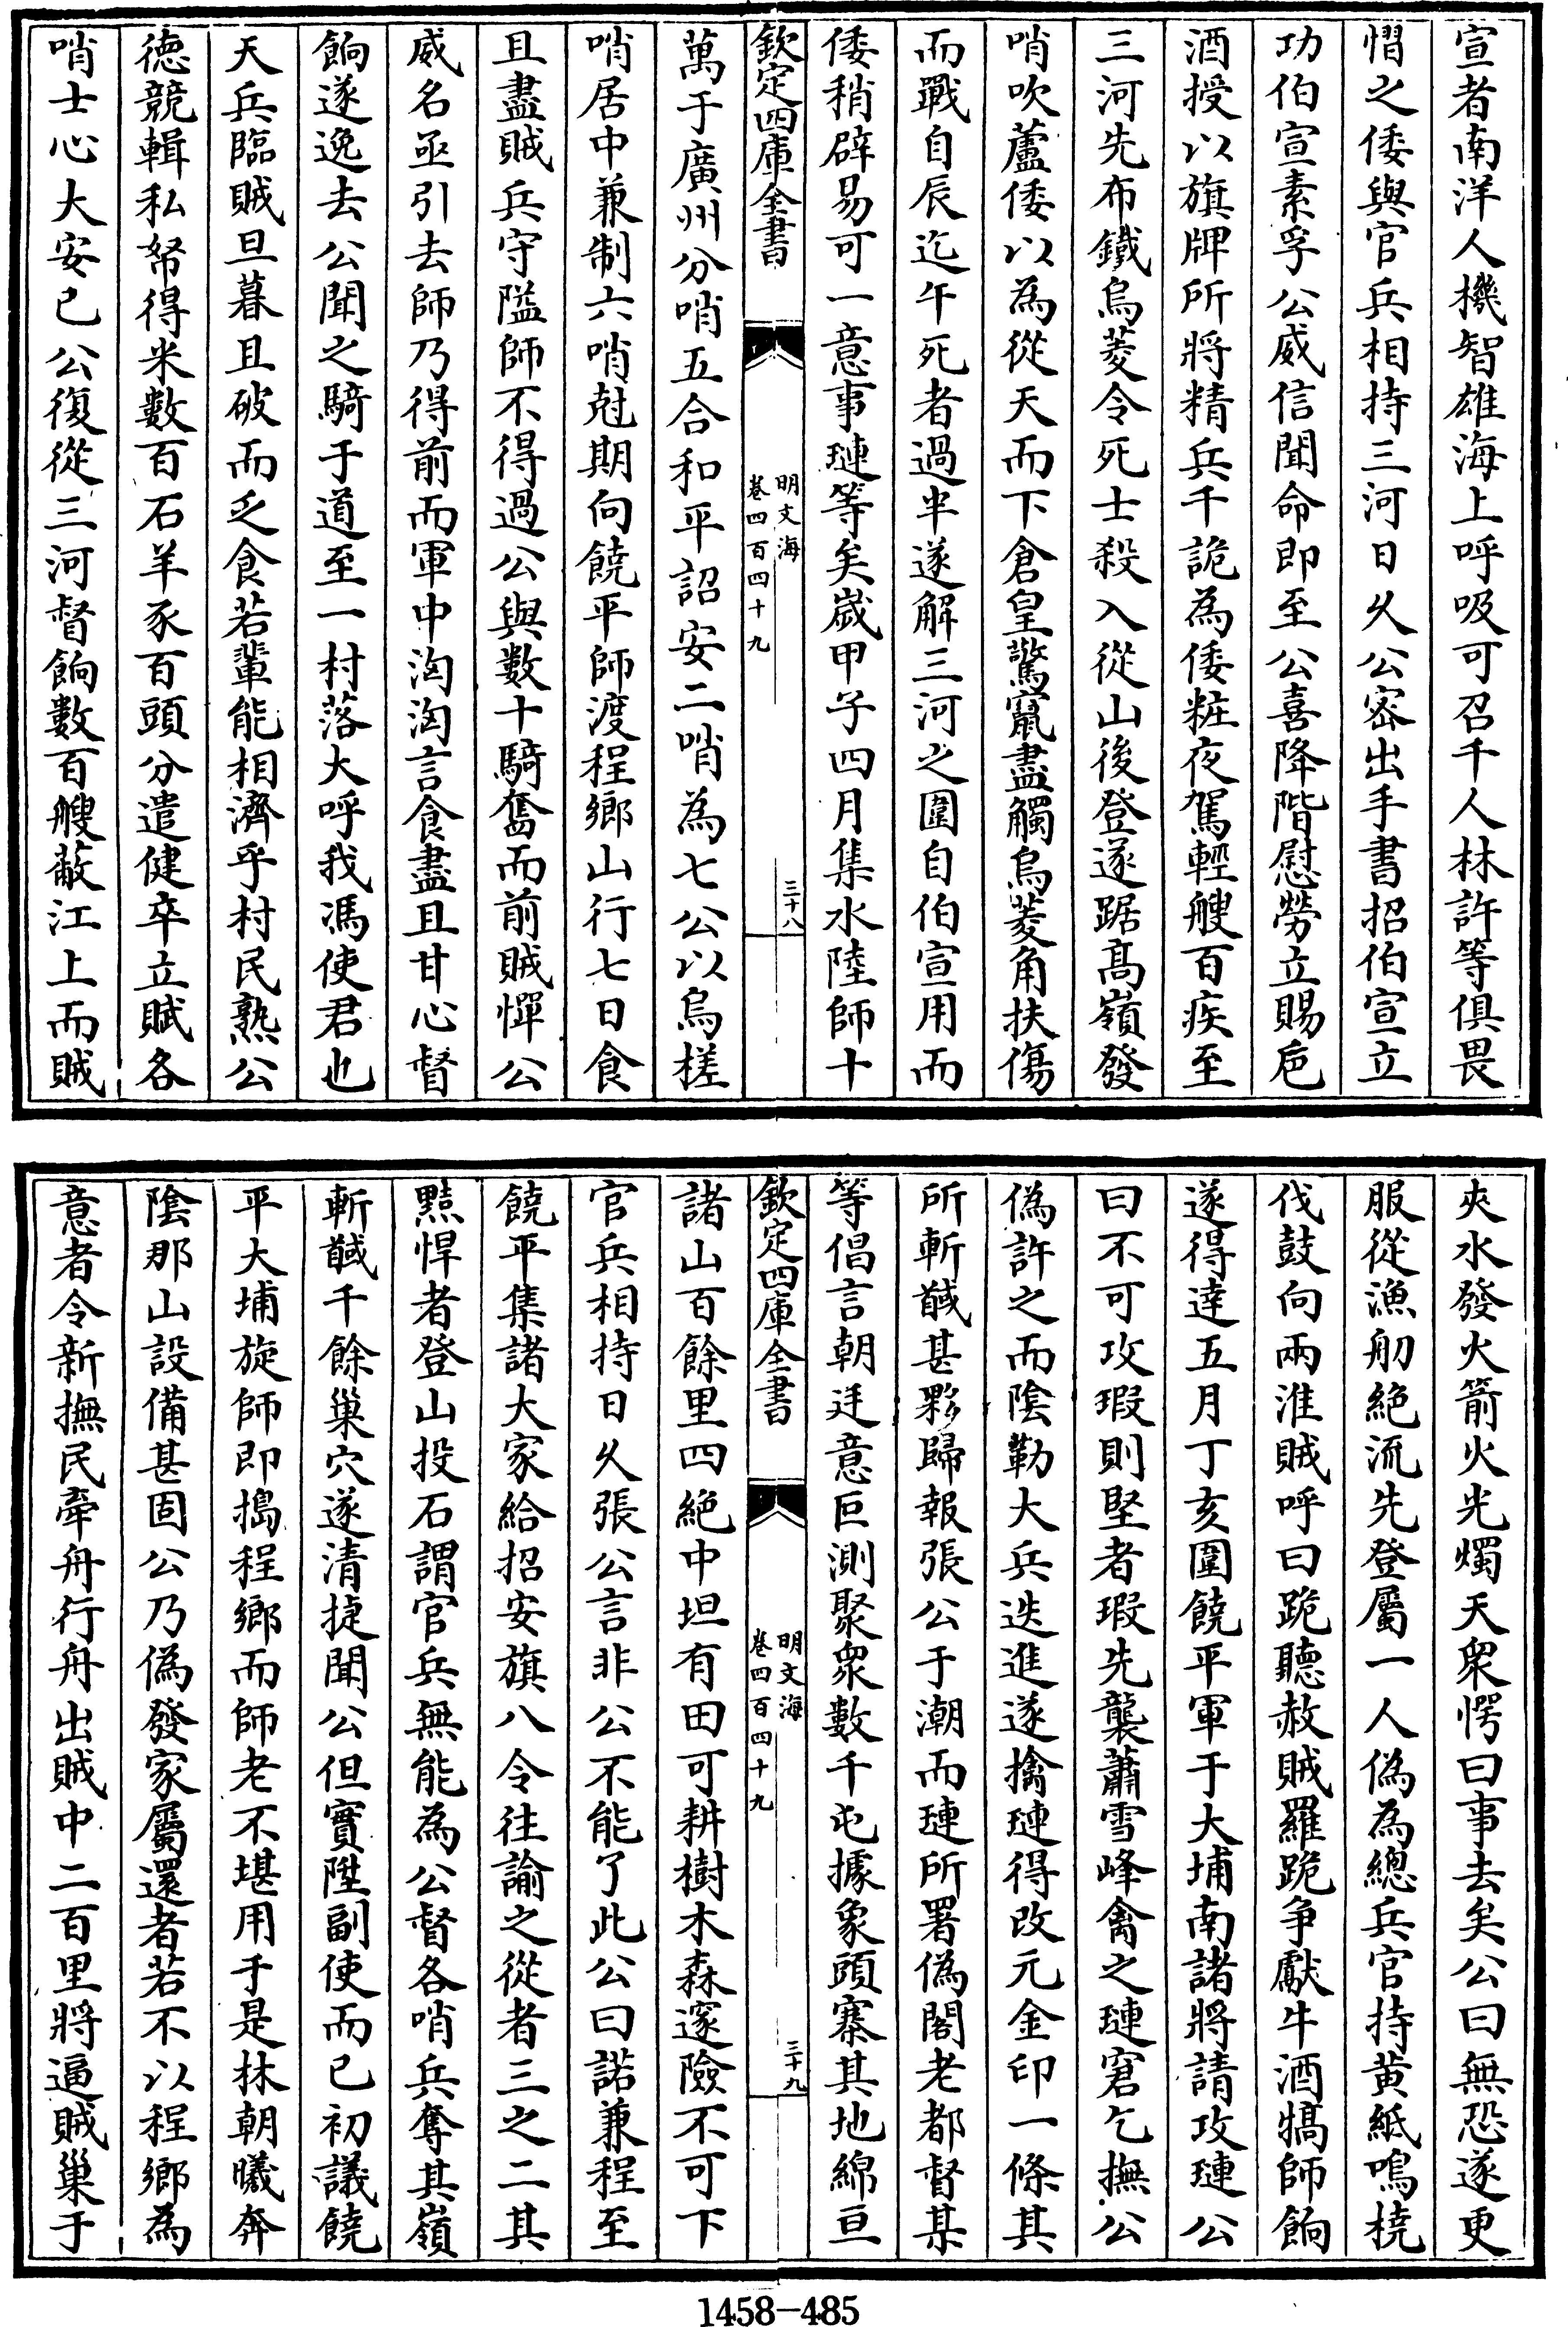 宣者南洋人機智雄海上呼吸可召千人林許等俱畏
慴之倭與官兵相持三河日久公密出手書招伯宣立
功伯宣素孚公威信聞命即至公喜降階慰勞立賜巵
酒授以旗牌所將精兵千詭為倭粧夜駕輕艘百疾至
三河先布鐵烏菱令死士殺入從山後登遂踞髙嶺發
哨吹蘆倭以為從天而下倉皇驚竄盡觸烏菱角扶傷
而戰自辰迄午死者過半遂解三河之圍自伯宣用而
倭稍辟易可一意事璉等矣嵗甲子四月集水陸師十
欽定四庫全書
明文海
卷四百四十九
三十八
萬于廣州分哨五合和平詔安二哨為七公以烏槎
哨居中兼制六哨尅期向饒平師渡程鄉山行七日食
且盡賊兵守隘師不得過公與數十騎奮而前賊憚公
威名亟引去師乃得前而軍中洶洶言食盡且甘心督
餉遂逸去公聞之騎于道至一村落大呼我馮使君也
天兵臨賊旦暮且破而乏食若輩能相濟乎村民熟公
徳競輯私帑得米數百石羊豕百頭分遣健卒立賦各
哨士心大安已公復從三河督餉數百艘蔽江上而賊
夾水發火箭火光燭天衆愕曰事去矣公曰無恐遂更
服從漁舠絶流先登屬一人偽為總兵官持黄紙鳴橈
伐鼓向兩淮賊呼曰跪聽赦賊羅跪争獻牛酒犒師餉
遂得達五月丁亥圍饒平軍于大埔南諸將請攻璉公
曰不可攻瑕則堅者瑕先襲蕭雪峰禽之璉窘乞撫公
偽許之而陰勒大兵迭進遂擒璉得改元金印一條其
所斬馘甚夥歸報張公于潮而璉所署偽閣老都督某
等倡言朝廷意叵測聚衆數千屯據象頭寨其地綿亘
欽定四庫全書
明文海
卷四百四十九
三十九
諸山百餘里四絶中坦有田可耕樹木森邃險不可下
官兵相持日久張公言非公不能了此公曰諾兼程至
饒平集諸大家給招安旗八令往諭之從者三之二其
黠悍者登山投石謂官兵無能為公督各哨兵奪其嶺
斬馘千餘巢穴遂清捷聞公但實陞副使而已初議饒
平大埔旋師即搗程鄉而師老不堪用于是林朝曦奔
陰那山設備甚固公乃偽發家屬還者若不以程鄉為
意者令新撫民牽舟行舟出賊中二百里將逼賊巢于
1458-485